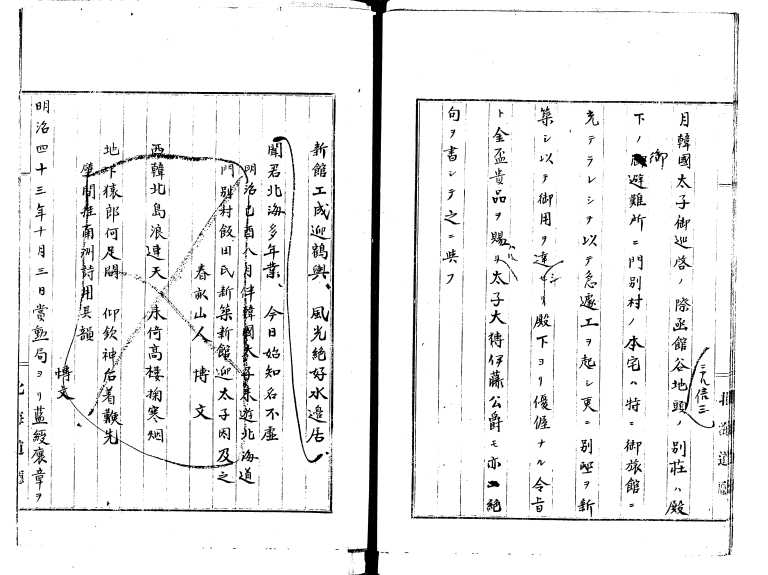 月韓國太子御巡啓ノ際函館谷地頭ノ別莊ハ殿
下ノ御避難所ニ門別村ノ本宅ハ特ニ御旅館ニ
充テラレシヲ以テ急遽工ヲ起シ更ニ別墅ヲ新
築シ以テ御用ヲ達シ殿下ヨリ優渥ナル令旨
ト金盃貴品ヲ賜ハル太子大傅伊藤公爵モ亦絶
句ヲ書シテ之ニ與フ
新館工成迎鶴輿、風光絶好水邉居、
聞君北海多年業、今日始知名不虚
明治己酉八月伴韓國太子来遊北海道
門別村飯田氏新築新館迎太子因及之
春畝山人 博文
西韓北島浪連天 来倚高樓掬寒烟
地下猿郎何足問 仰欽神后着鞭先
壁間在南洲詩用其韻
博文
明治四十三年十月三日賞勲局ヨリ藍綬褒章ヲ
北海道廳